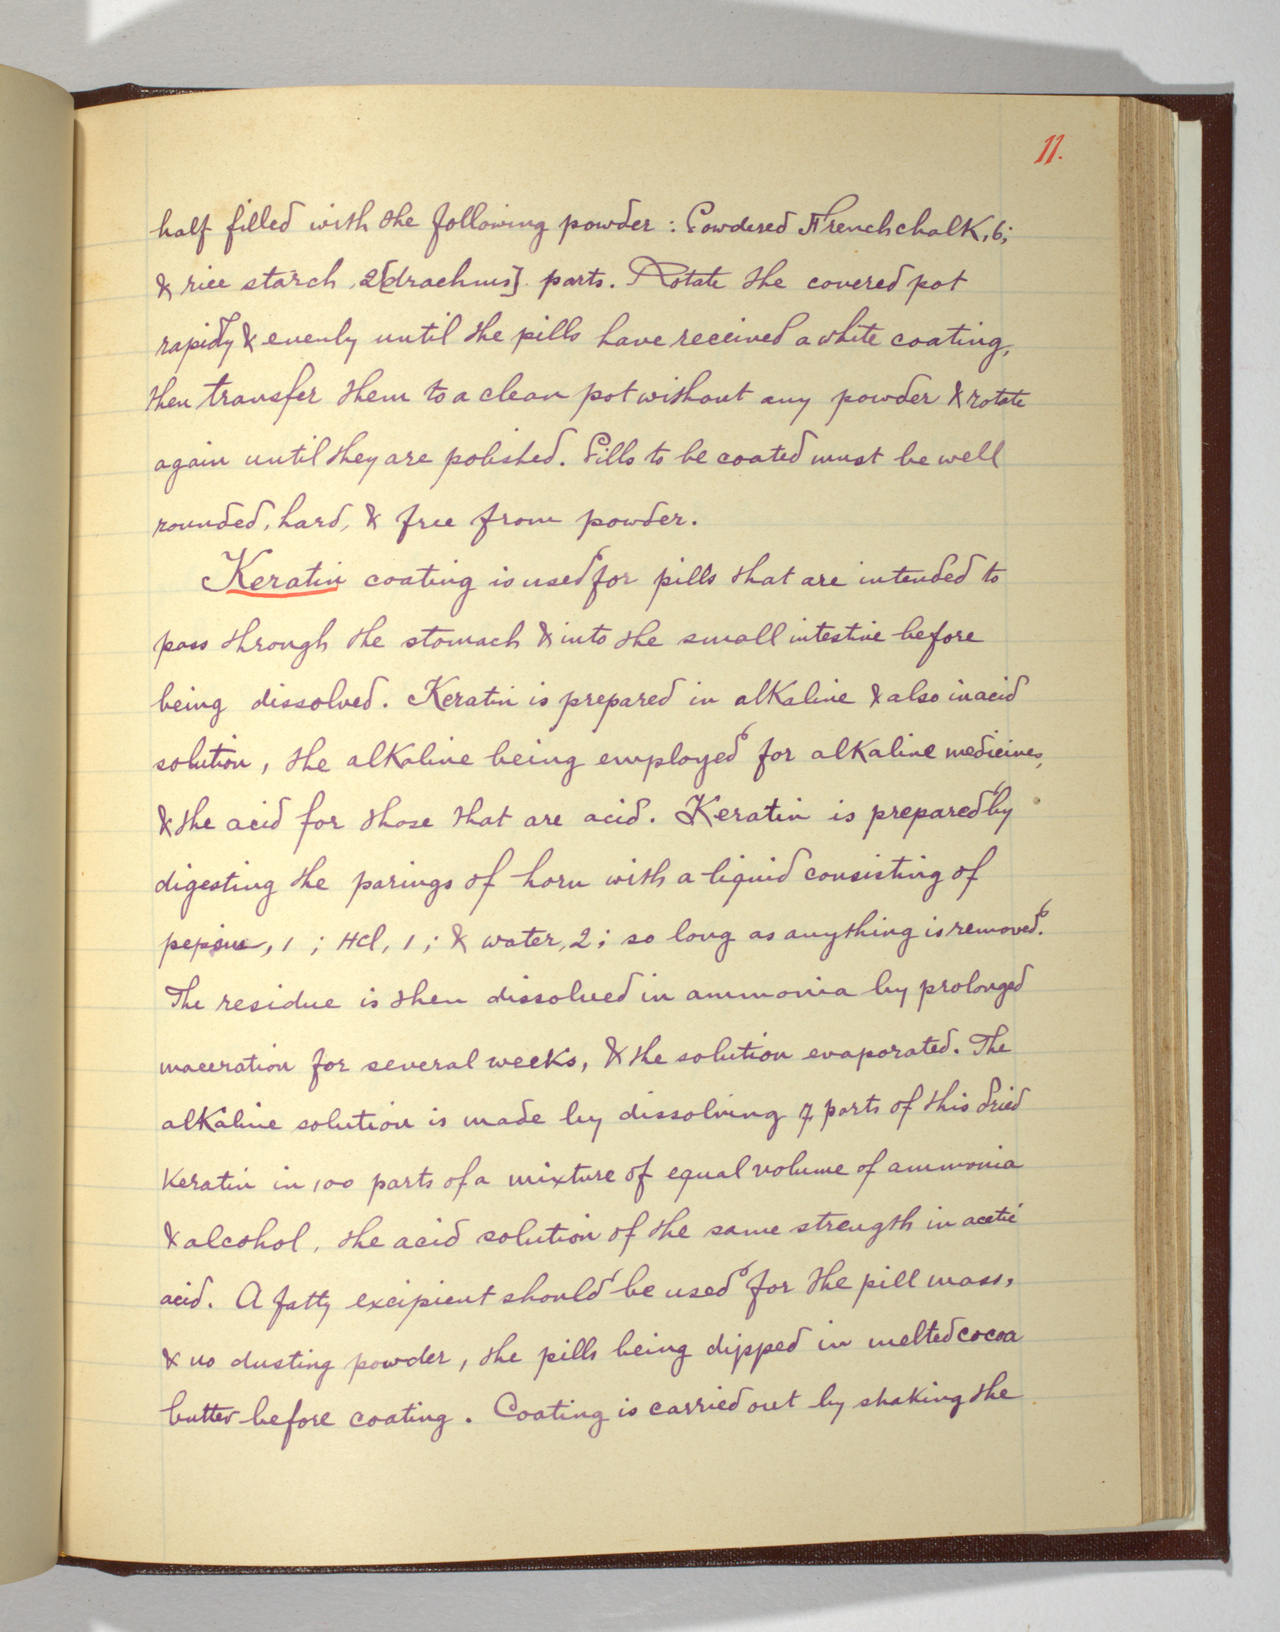 11.
half filled with the following powder : Powdered French chalk, 6;
& rice starch, 2 [drachms] parts. Rotate the covered pot
rapidly & evenly until the pills have received a white coating,
then transfer them to a clean pot without any powder & rotate
again until they are polished. Pills to be coated must be well
rounded, hard, & free from powder.
Keratin coating is used for pills that are intended to
pass through the stomach & into the small intestine before
being dissolved. Keratin is prepared in alkaline & also in acid
solution, the alkaline being employed for alkaline medicines,
& the acid for those that are acid. Keratin is prepared by
digesting the parings of horn with a liquid consisting of
pepsine, 1 ; HCl, 1 ; & water, 2 ; so long as anything is removed.
The residue is then dissolved in ammonia by prolonged
maceration for several weeks, & the solution evaporated. The
alkaline solution is made by dissolving 7 parts of this dried
keratin in 100 parts of a mixture of equal volume of ammonia
& alcohol, the acid solution of the same strength in acetic
acid. A fatty excipient should be used for the pill mass,
& no dusting powder, the pills being dipped in melted cocoa
butter before coating. Coating is carried out by shaking the